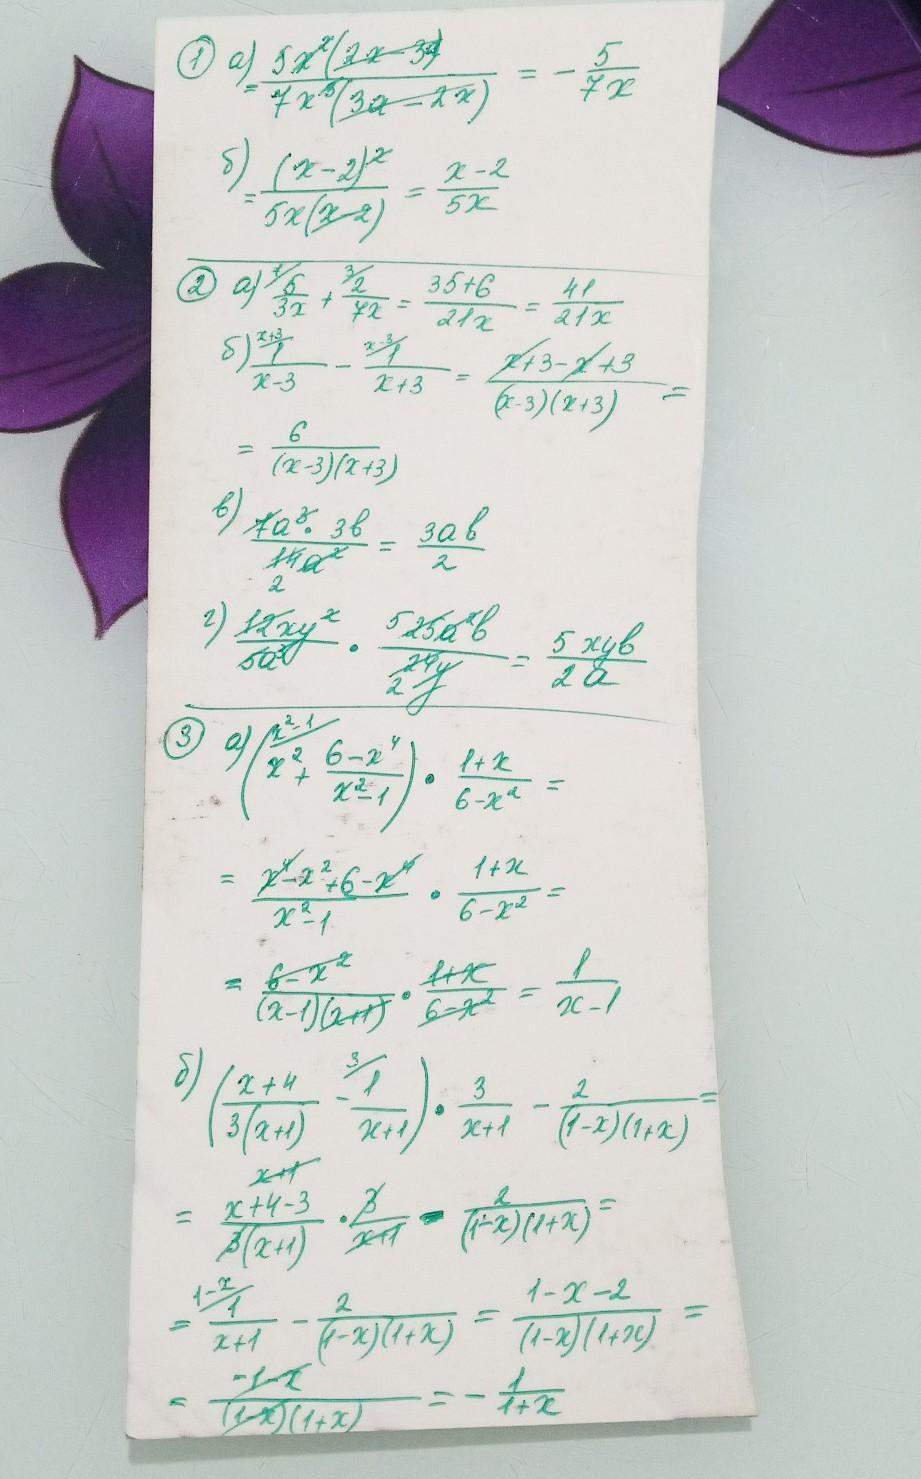 ① а) = 5x²(2x-3y) / 7x³(3a-2x) = - 5/7x
б) = (x-2)² / 5x(x-2) = x-2 / 5x
② а) ⁷/5/3x + ³/2/7x = 35+6 / 21x = 41 / 21x
б) ˣ⁺³/1 / x-3 - ˣ⁻³/1 / x+3 = x+3-x+3 / (x-3)(x+3) =
= 6 / (x-3)(x+3)
в) 7a³ · 3b / 14a² 2 = 3ab / 2
г) 12xy² / 5a³ · 5 25a²b / 24y 2 = 5xyb / 2a
③ а) (x²-1/ x² + 6-x⁴ / x²-1) · 1+x / 6-x² =
= x⁴-x²+6-x⁴ / x²-1 · 1+x / 6-x² =
= 6-x² / (x-1)(x+1) · 1+x / 6-x² = 1 / x-1
б) (x+4 / 3(x+1) - ³/1 / x+1) · 3 / x+1 - 2 / (1-x)(1+x) =
x+1
= x+4-3 / 3(x+1) · 3 / x+1 - 2 / (1-x)(1+x) =
= 1-x/ 1 / x+1 - 2 / (1-x)(1+x) = 1-x-2 / (1-x)(1+x) =
= -1-x / (1-x)(1+x) = - 1 / 1+x